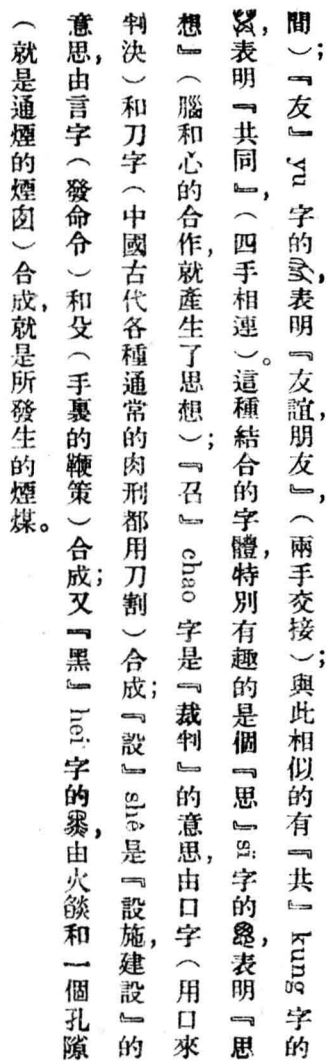 間）；『友』yu 字的，表明『友誼，朋友』，（兩手交接）；與此相似的有『共』kung 字的
，表明『共同』，（四手相連）。這種結合的字體，特別有趣的是個『思』sï 字的，表明『思
想』（腦和心的合作，就產生了思想）；『召』chao 字是『裁判』的意思，由口字（用口來
判決）和刀字（中國古代各種通常的肉刑都用刀割）合成；『設』shê 是『設施，建設』的
意思，由言字（發命令）和殳（手裏的鞭策）合成；又『黑』hei 字的，由火燄和一個孔隙
（就是通煙的煙囱）合成，就是所發生的煙煤。